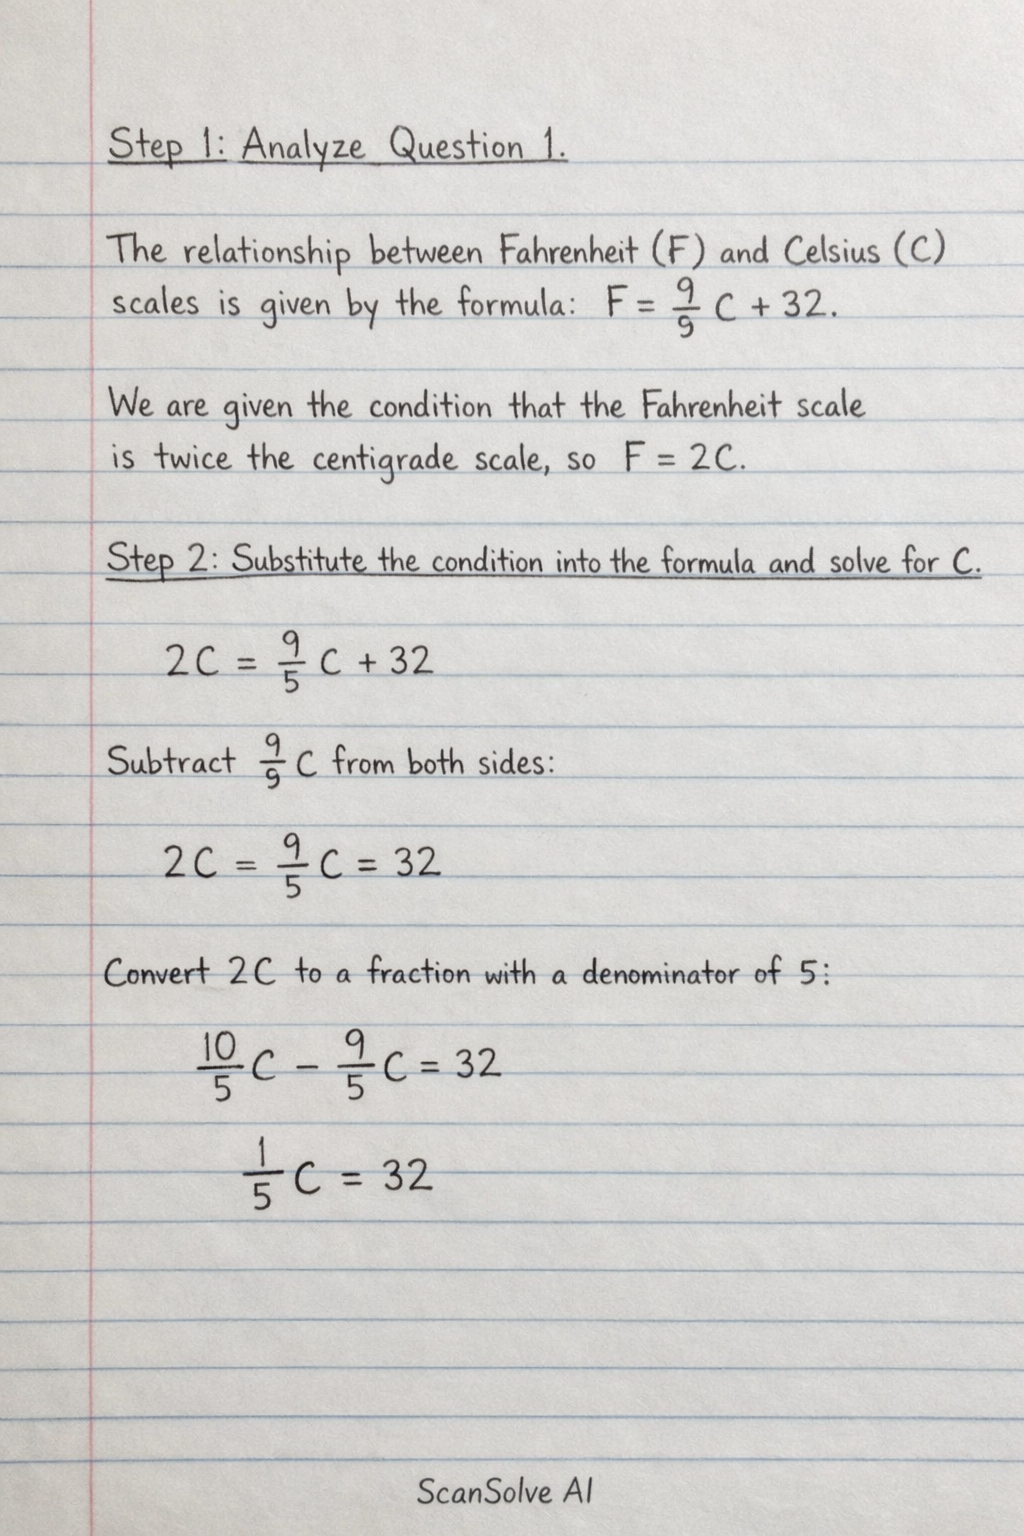 Step 1: Analyze Question 1.
The relationship between Fahrenheit (F) and Celsius (C)
scales is given by the formula: F = 9/9 C + 32.
We are given the condition that the Fahrenheit scale
is twice the centigrade scale, so F = 2C.
Step 2: Substitute the condition into the formula and solve for C.
2C = 9/5 C + 32
Subtract 9/9 C from both sides:
2C = 9/5 C = 32
Convert 2C to a fraction with a denominator of 5:
10/5 C − 9/5 C = 32
1/5 C = 32
ScanSolve AI